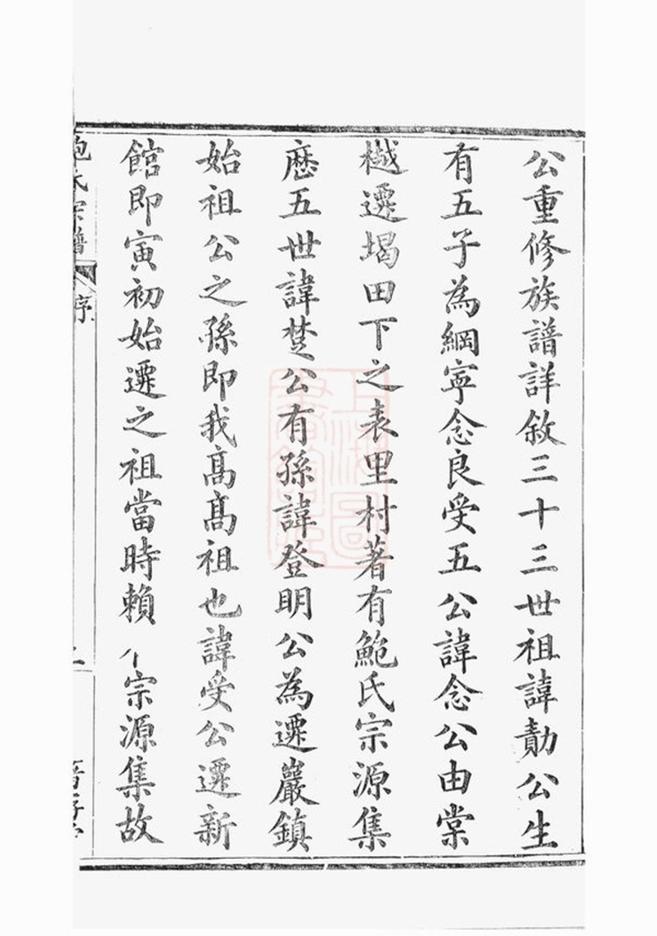 公重修族譜詳敘三十三世祖諱勣公生
有五子為綱寧念良受五公諱念公由棠
樾遷堨田下之表里村著有鮑氏宗源集
歷五世諱楚公有孫諱登明公為遷巖鎮
始祖公之孫即我高高祖也諱受公遷新
館即寅初始遷之祖當時賴 宗源集故
鮑氏宗譜
序